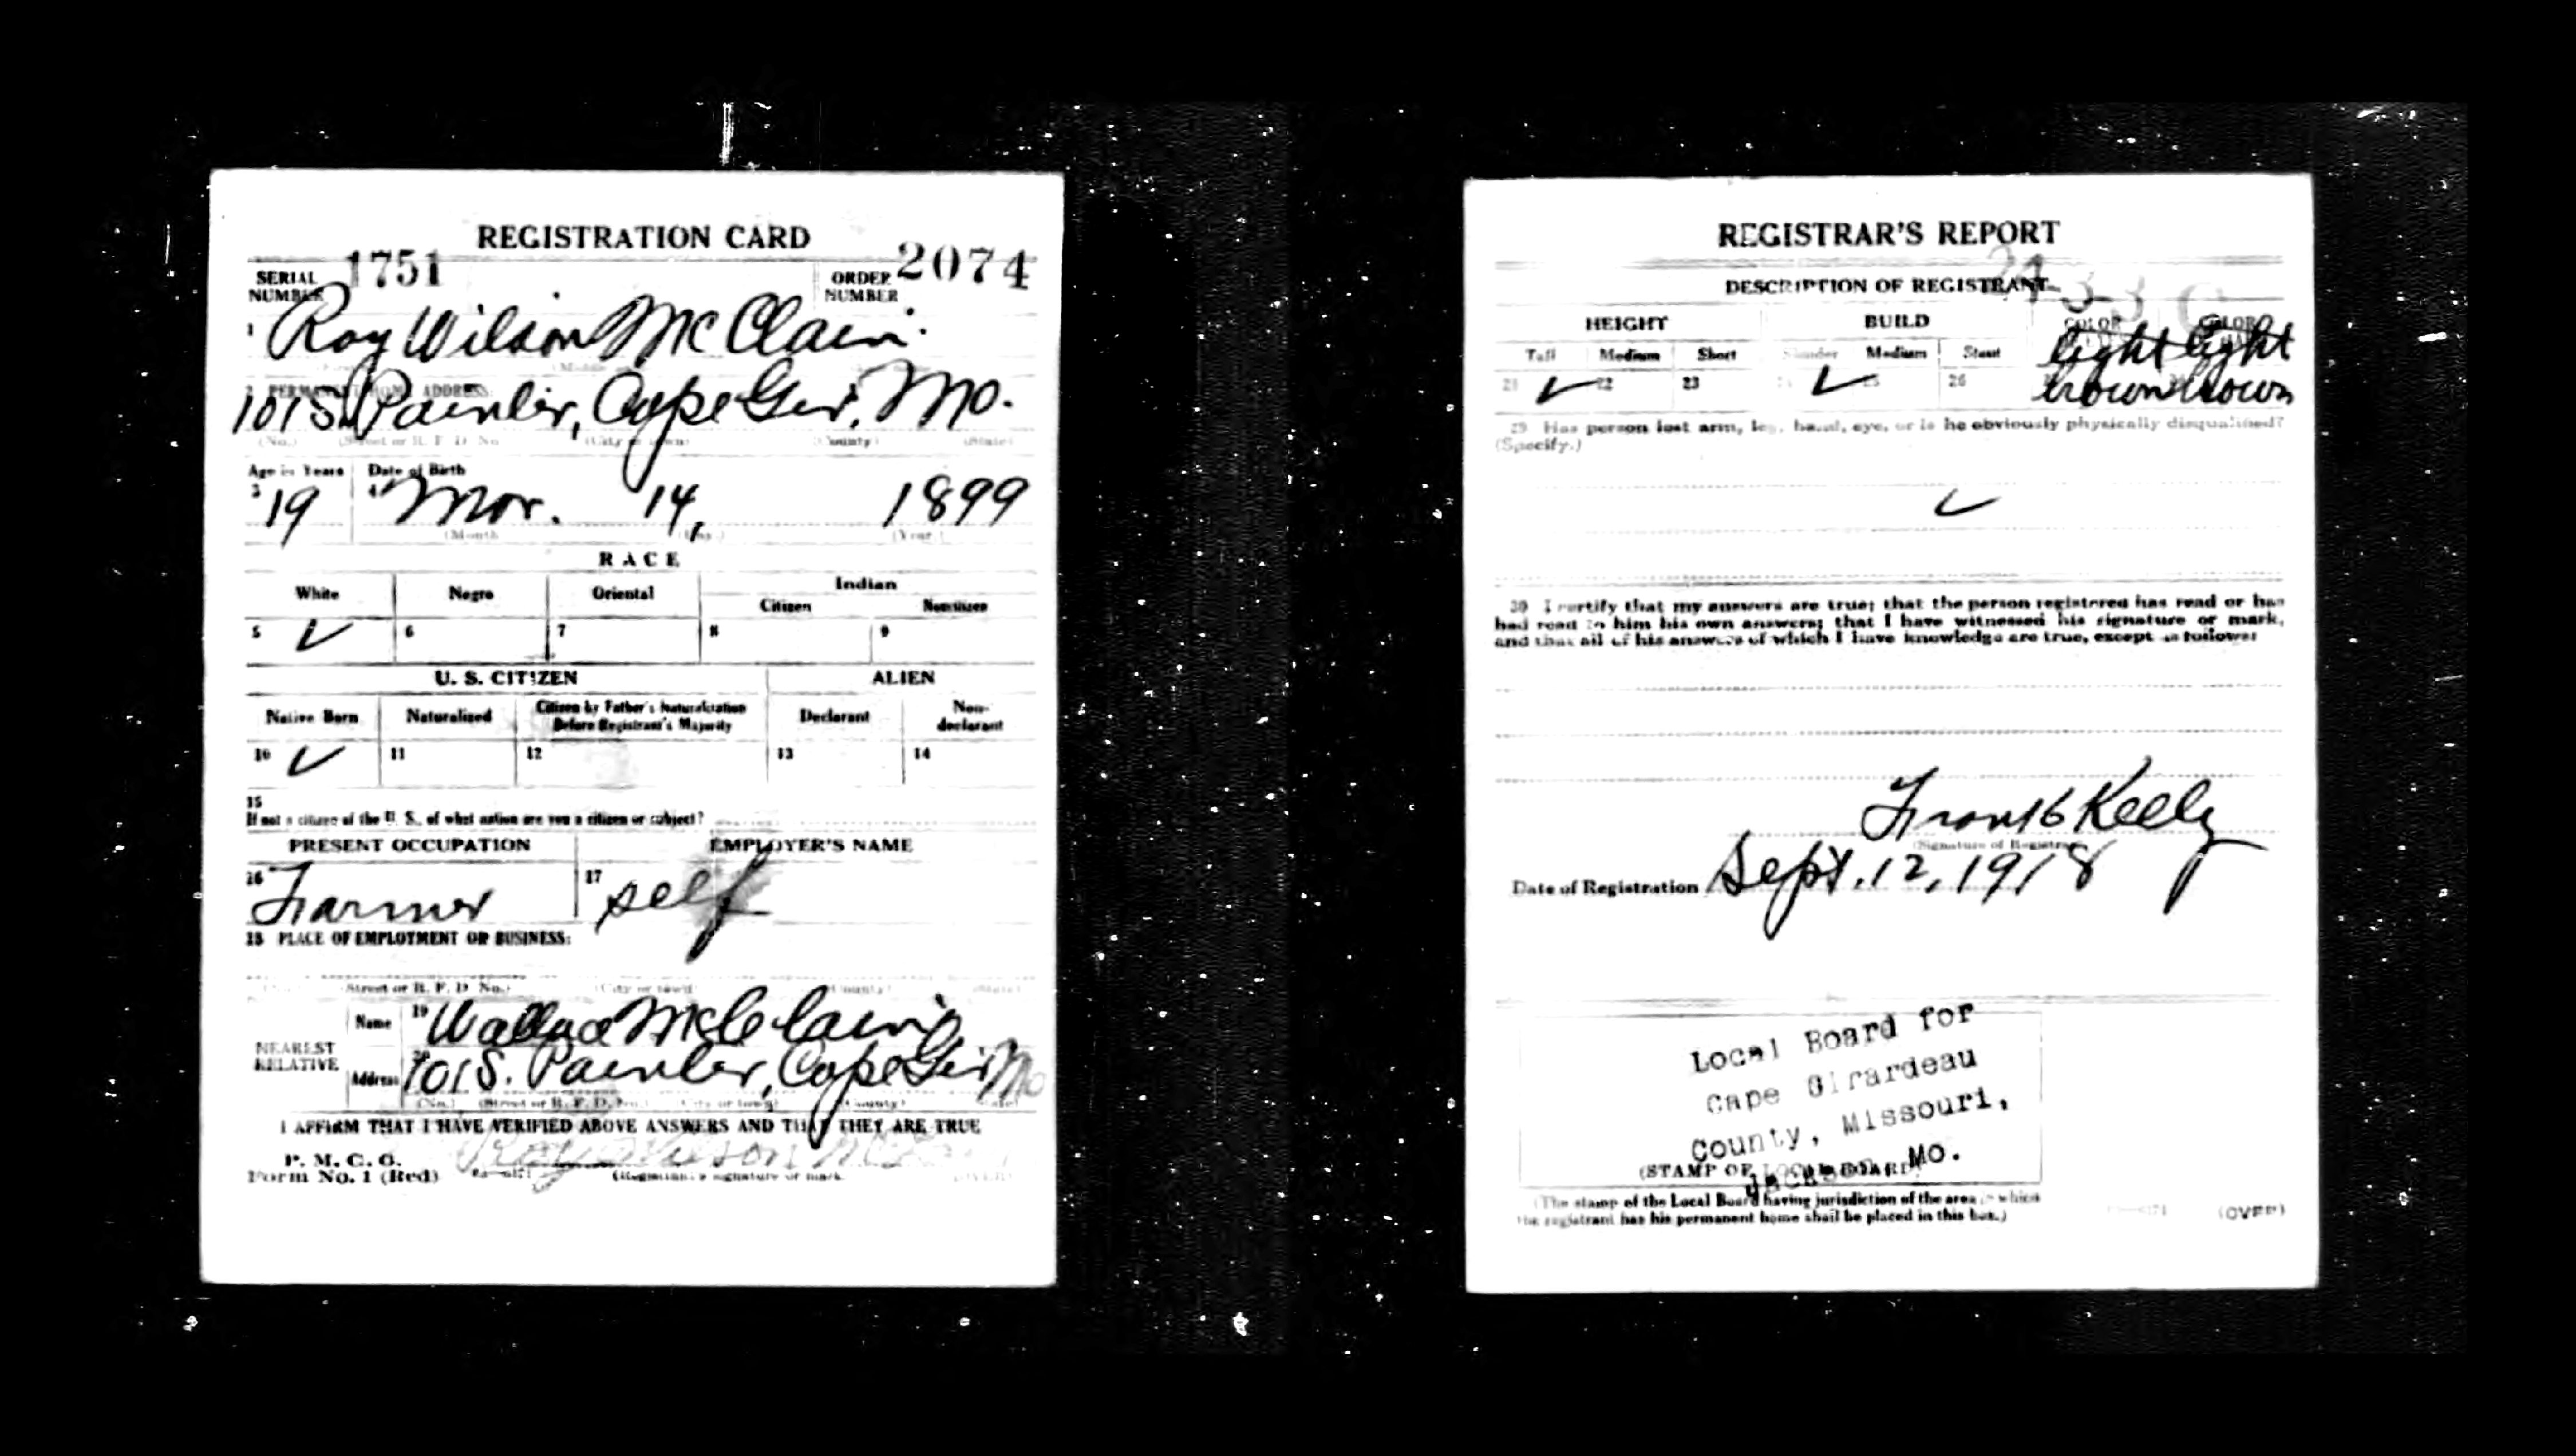 REGISTRATION CARD
SERIAL NUMBER 1751 ORDER NUMBER 2074
1 Roy Wilson McClain
2 PERMANENT HOME ADDRESS:
101 S. Painter, Cape Gir, Mo.
(No.) (Street or R. F. D. No. (City or town) (County) (State)
Age in Years Date of Birth
3 19 4 Mar. 14, 1899
(Month (Day.) (Year.)
RACE
White Negro Oriental Indian
Citizen Noncitizen
5 ✓ 6 7 8 9
U. S. CITIZEN ALIEN
Native Born Naturalized Citizen by Father's Naturalization Before Registrant's Majority Declarant Non-declarant
10 ✓ 11 12 13 14
15
If not a citizen of the U. S., of what nation are you a citizen or subject?
PRESENT OCCUPATION EMPLOYER'S NAME
16 Farmer 17 self
18 PLACE OF EMPLOYMENT OR BUSINESS:
Street or R. F. D. No.) (City or town) (County) (State)
NEAREST RELATIVE
Name 19 Wallace McClain
Address 20 101 S. Painter, Cape Gir Mo
(No.) (Street or R. F. D. No.) (City or town) (County) State)
I AFFIRM THAT I HAVE VERIFIED ABOVE ANSWERS AND THAT THEY ARE TRUE
P. M. C. O.
Form No. 1 (Red)
Roy Wilson
(Registrant's signature or mark
REGISTRAR'S REPORT
DESCRIPTION OF REGISTRANT
HEIGHT BUILD COLOR COLOR
Tall Medium Short Slender Medium Stout
21 ✓ 22 23 ✓ 25 26 light brown light brown
29 Has person lost arm, leg, hand, eye, or is he obviously physically disqualified?
(Specify.)
✓
30 I certify that my answers are true; that the person registered has read or has
had read to him his own answers; that I have witnessed his signature or mark,
and that all of his answers of which I have knowledge are true, except as follows:
Frank Keely
(Signature of Registrar
Date of Registration Sept. 12, 1918
Local Board for
Cape Girardeau
County, Missouri,
Jackson Mo.
(STAMP OF LOCAL BOARD)
(The stamp of the Local Board having jurisdiction of the area in which
the registrant has his permanent home shall be placed in this box.)
(OVER)